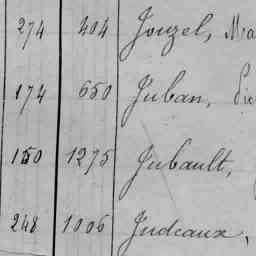 274 404 Jouzel, Ma
174 650 Juban, Pie
150 1275 Jubault,
248 1006 Judeaux,